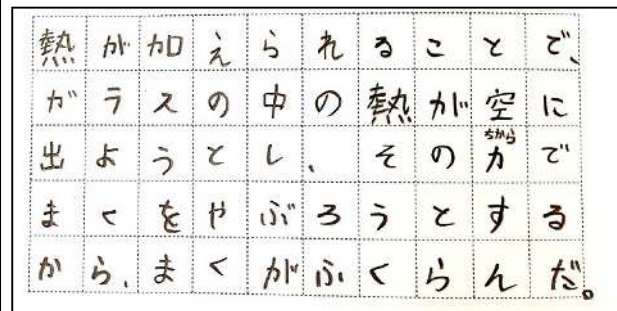 熱が加えられることで、
ガラスの中の熱が空に
出ようとし、その力で
まくをやぶろうとする
から、まくがふくらんだ。